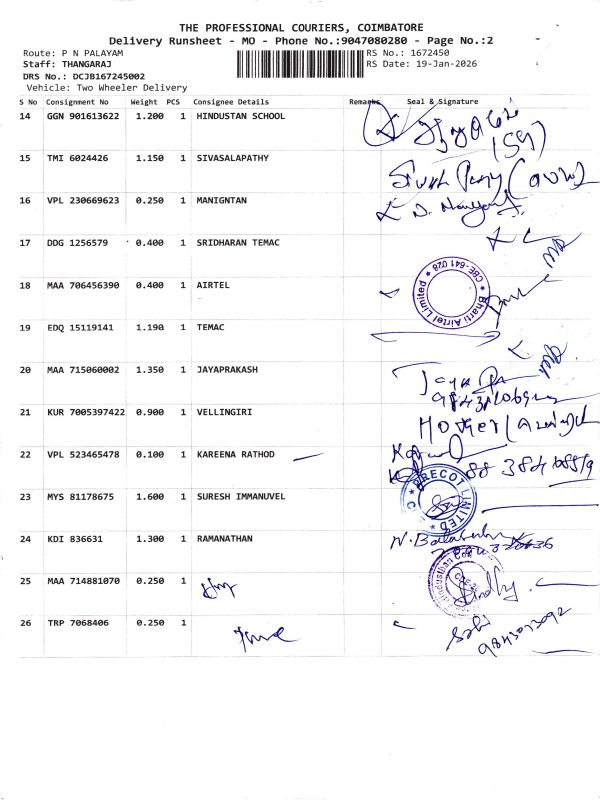 THE PROFESSIONAL COURIERS, COIMBATORE
Delivery Runsheet - MO - Phone No.:9047080280 - Page No.:2
Route: P N PALAYAM RS No.: 1672450
Staff: THANGARAJ RS Date: 19-Jan-2026
DRS No.: DCJB167245002
Vehicle: Two Wheeler Delivery
S No Consignment No Weight PCS Consignee Details Remarks Seal & Signature
14 GGN 901613622 1.200 1 HINDUSTAN SCHOOL
15 TMI 6024426 1.150 1 SIVASALAPATHY
16 VPL 230669623 0.250 1 MANIGNTAN
17 DDG 1256579 0.400 1 SRIDHARAN TEMAC
18 MAA 706456390 0.400 1 AIRTEL
Bharti Airtel Limited * CBE-641 026 *
19 EDQ 15119141 1.190 1 TEMAC
20 MAA 715060002 1.350 1 JAYAPRAKASH
21 KUR 7005397422 0.900 1 VELLINGIRI
22 VPL 523465478 0.100 1 KAREENA RATHOD
23 MYS 81178675 1.600 1 SURESH IMMANUVEL
PRECOT LIMITED
24 KDI 836631 1.300 1 RAMANATHAN
25 MAA 714881070 0.250 1
26 TRP 7068406 0.250 1